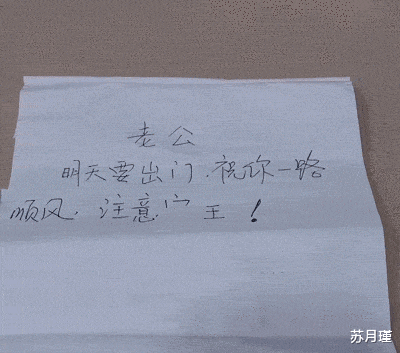 老公
明天要出门.祝你一路
顺风.注意宀王!
苏月瑾